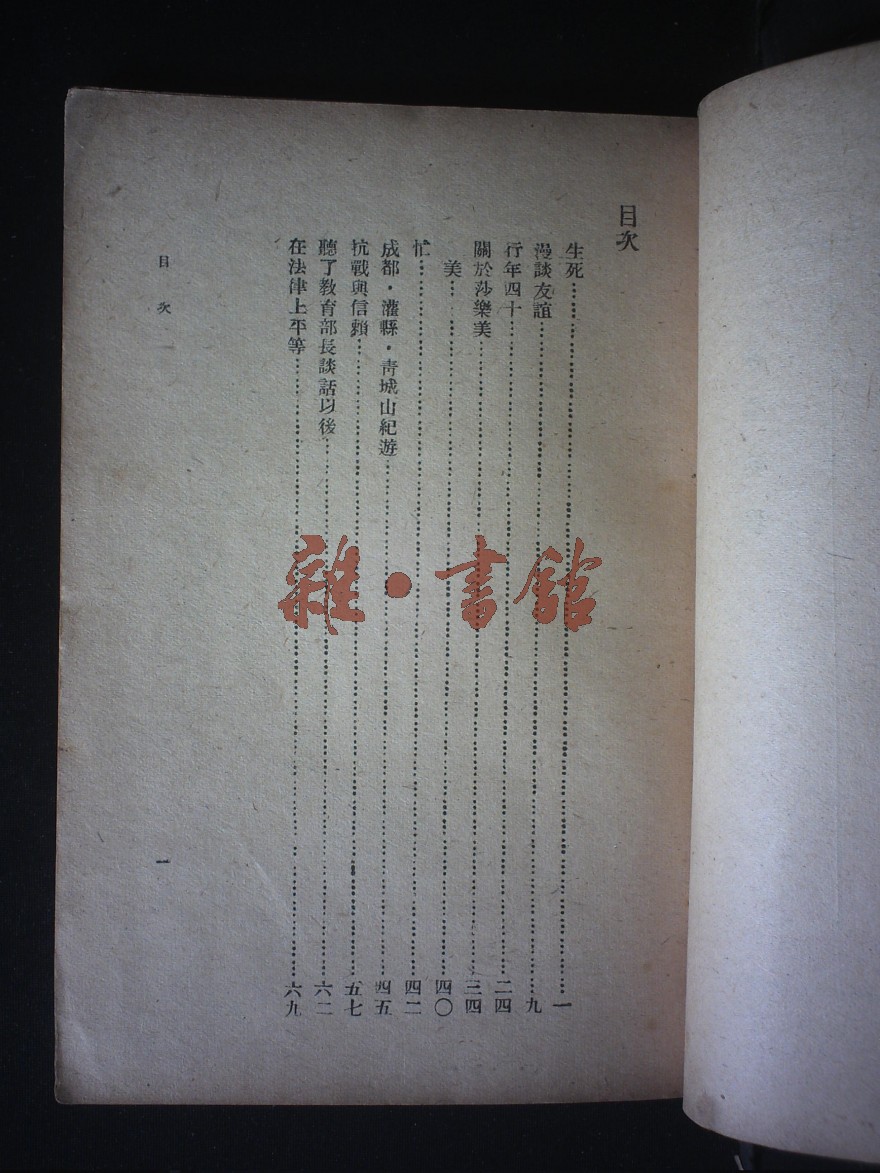 目次
生死……一
漫談友誼……九
行年四十……二四
關於莎樂美……三四
美……四〇
忙……四二
成都・灌縣・青城山紀遊……四五
抗戰與信賴……五七
聽了教育部長談話以後……六二
在法律上平等……六九
目次
一
雜・書館